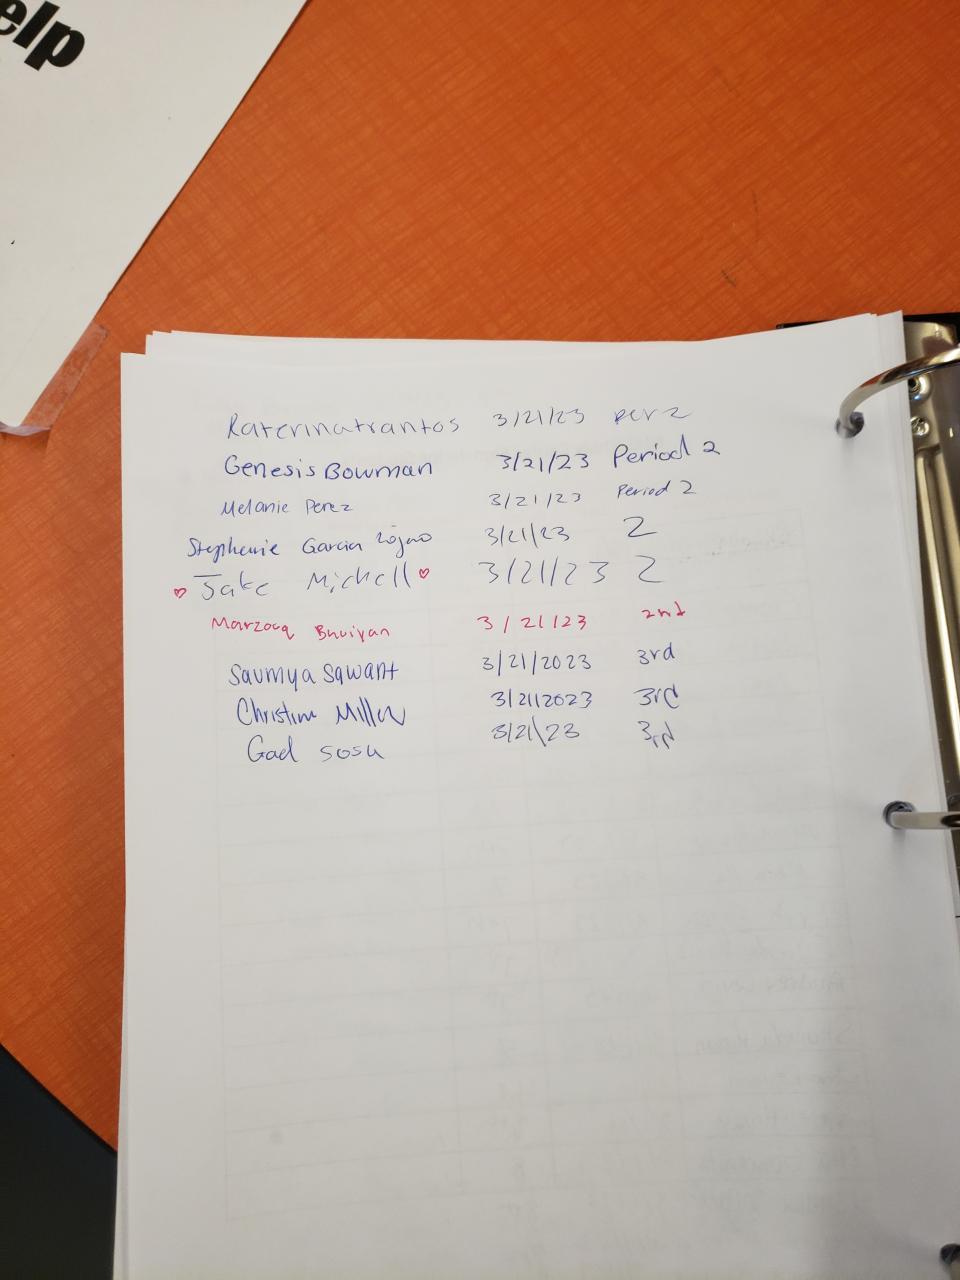 elp
Katerinatrantos 3/21/23 per 2
Genesis Bowman 3/21/23 Period 2
Melanie Perez 3/21/23 Period 2
Stephanie Garcia 3/21/23 2
Jake Michell 3/21/23 2
Marzooq Bhuiyan 3/21/23 2nd
Saumya Sawant 3/21/2023 3rd
Christine Miller 3/21/2023 3rd
Gad sosu 3/21/23 3rd